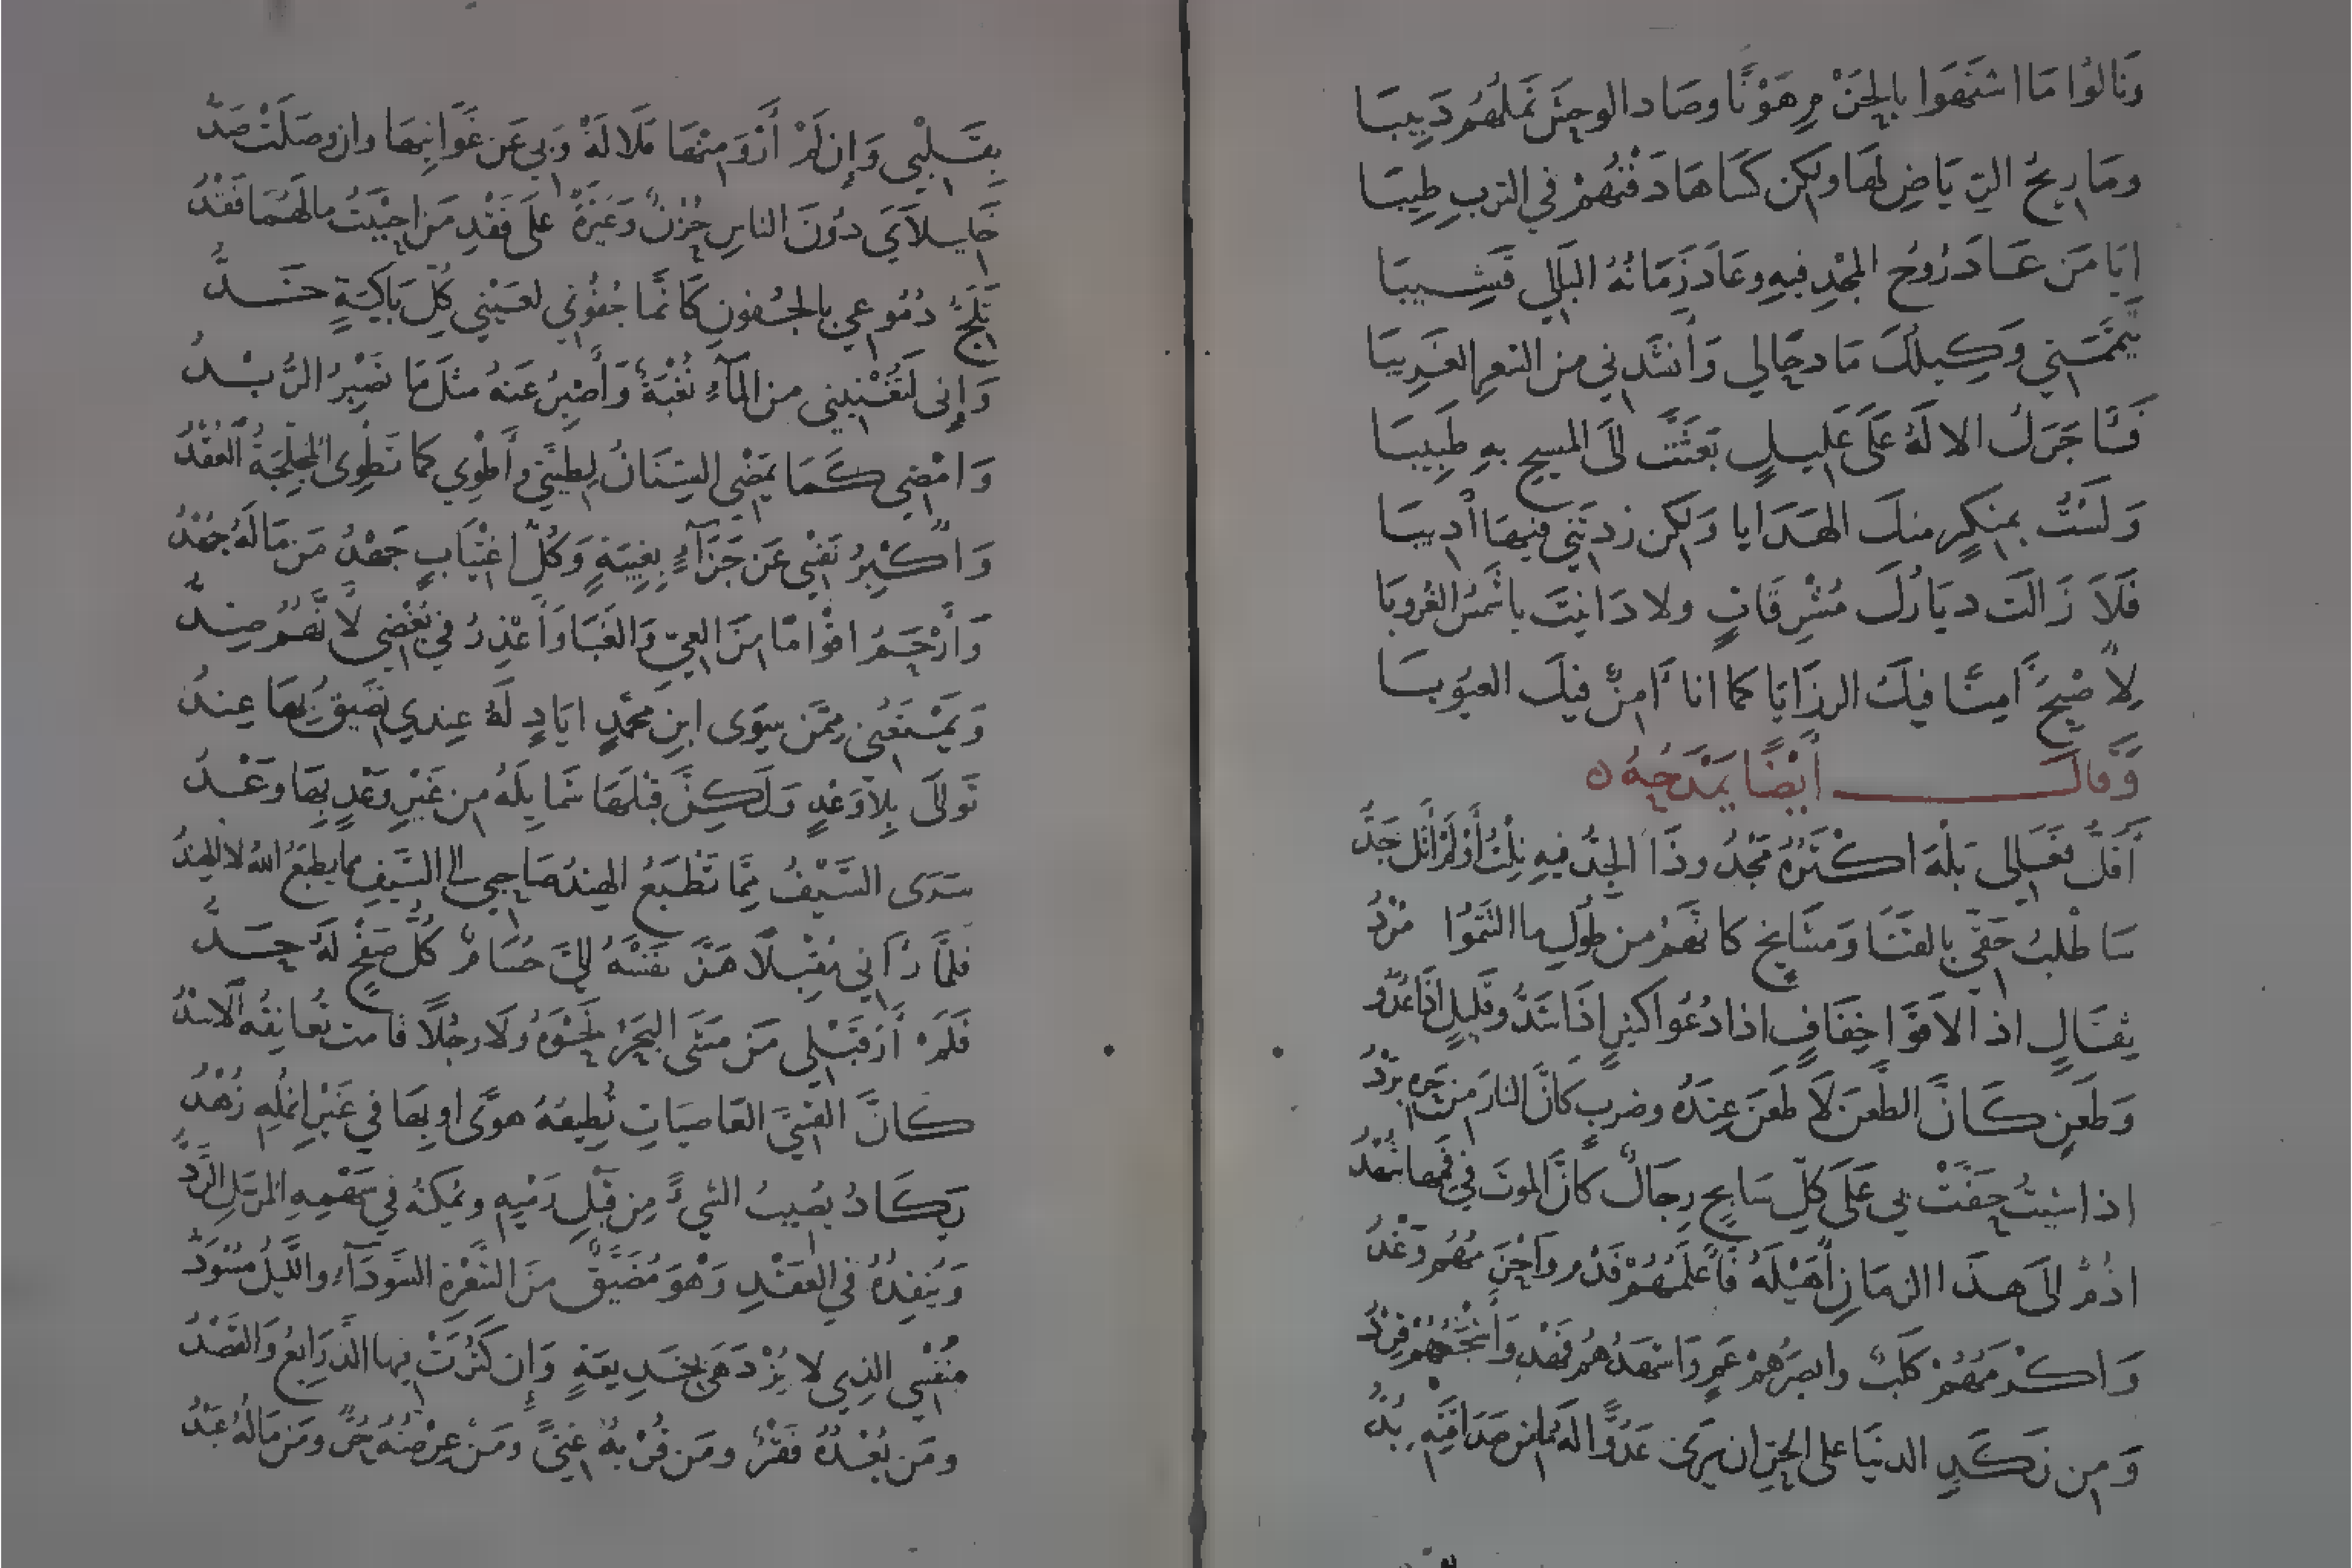 وَنَالُوا مَا اشْتَهَوْا بِالحَزْمِ هَوْنًا وصَادَ الوحشَ نَملُهُم دَبِيبَا
ومَا رِيحُ الرِّيَاضِ لَهَا ولكن كَسَاهَا دَفْنُهُمْ في التربِ طِيبَا
ايَا مَن عَادَ رُوحُ المجْدِ فيهِ وعَادَ زَمَانُهُ البَالي قَشِيبَا
تَيَمَّمَني وَكيلُكَ مَادحًا لي وَأنشَدَني من الشعرِ الغَرِيبَا
فَآجَرَكَ الالَهُ عَلَى عَليلٍ بَعَثْتَ الَى المسيحِ بهِ طَبِيبَا
وَلَسْتُ بمنكِرٍ منكَ الهَدَايا وَلكن زدتَنِي فيهَا أدِيبَا
فَلَا زَالَت ديَارُكَ مُشْرِقَاتٍ ولا دَانيتَ يا شَمسُ الغُرُوبَا
لِأُصْبِحَ آمِنًا فيكَ الرزَايَا كما انا آمِنٌ فيكَ العيُوبَا
وَقالَ أيْضًا يَمْدَحُهُ
أقَلُّ فَعَالِي بَلْهَ اكْثَرُهُ مَجْدُ وذَا الجِدُّ فيهِ نِلْتُ أوْ لَمْ أنَلْ جَدُّ
سَاطْلبُ حَقّي بالقَنَا وَمشَايخٍ كانَّهمُ من طُولِ ما التَثَمُوا مُرْدُ
ثِقَالٍ اذا لاقَوْا خِفَافٍ اذا دُعُوا كثيرٍ اذَا شَدُّوا قَليلٍ اذَا عُدُّوا
وَطَعنٍ كَانَّ الطَّعنَ لَا طَعنَ عِندَهُ وضربٍ كَانَّ النارَ من حَرِّهِ بَرْدُ
اذا شِئتُ حَفَّتْ بي عَلَى كلّ سَابحٍ رِجَالٌ كَانَّ الموتَ في فَمِها شَهْدُ
اذُمُّ الى هذَا الزمَانِ أُهَيْلَهُ فَأعلَمُهُمْ فَدْمٌ وَأحْزَمُهُم وَغْدُ
وَاكْرَمُهُمْ كَلبٌ وابصَرُهُمْ عَمٍ وَاسْهَدُهُمْ فَهْدٌ وَأشْجَعُهُمْ قِرْدُ
وَمِن نَكَدِ الدنيَا على الحرّ ان يَرَى عَدُوًّا لَهُ مَا من صَدَاقَتِهِ بُدُّ
بِقَلبِي وَإن لَمْ أرْوَ مِنْهَا مَلَالَةٌ وَبي عَن غَوَانِيهَا وان وصَلَتْ صَدُّ
خَليلَايَ دُونَ الناسِ حُزْنٌ وَعَبْرَةٌ عَلَى فَقْدِ مَن احبَبْتُ ما لَهُمَا فَقْدُ
تَلَجُّ دُمُوعي بالجُفونِ كَانَّما جُفُوني لعَيْنَي كُلِّ بَاكِيَةٍ خَدُّ
وَإنى لَتُغْنِيني من المآءِ نُغْبَةٌ وَأصْبِرُ عَنهُ مثلَ مَا تَصْبِرُ الرُّبْدُ
وَامْضِي كَمَا يَمْضِي السِّنَانُ لِطِيَّتِي وأَطْوِي كما تَطْوِى المُجَلِّحَةُ العُقْدُ
وَاكْبِرُ نَفْسِي عَن جَزَآءٍ بِغِيبَةٍ وَكُلُّ اغْتِيَابٍ جَهْدُ مَن مَا لَهُ جُهْدُ
وَأرْحَمُ اقْوَامًا مِنَ العِيِّ وَالغَبَا وَأعْذِرُ في بُغْضِي لأنَّهُمُ ضِدُّ
وَيَمْنَعُنِي مِمَّن سِوَى ابنِ مُحمَّدٍ ايَادٍ لَهُ عِندِي تَضيقُ بهَا عِندُ
تَوَالَى بِلا وَعْدٍ وَلَكِنَّ قَبْلَهَا شَمَايِلَهُ من غَيْرِ وَعْدٍ بِهَا وَعْدُ
سَرَى السَّيْفُ مِمَّا تَطْبَعُ الهِندُ صَاحِبِي الى السَّيفِ مما يَطبَعُ اللهُ لا الهِندُ
فلَمَّا رَآني مُقْبِلًا هَزَّ نَفْسَهُ الَيَّ حُسَامٌ كُلُّ صَفْحٍ لَهُ حَدُّ
فَلَمْ أرَ قَبْلِي مَن مَشَى البَحْرُ نَحْوَهُ وَلَا رجُلًا قامت تُعَانِقُه الأُسْدُ
كَانَّ القِسِيَّ العَاصِيَاتِ تُطِيعُهُ هَوًى او بِهَا في غَيْرِ انْمُلِهِ زُهْدُ
يَكَادُ يُصِيبُ الشيءَ مِن قَبْلِ رَمْيِهِ ويُمْكِنُه في سَهْمِهِ المُرْسَلِ الرَّدُّ
وَيُنفِذُهُ في العَقْدِ وَهْوَ مُضَيَّقٌ مِنَ الشَّعْرَةِ السَّودَآءِ واللَّيلُ مُسْوَدُّ
بنَفْسِي الذِي لا يُزْدَهَى بخَدِيعَةٍ وَإن كَثُرَتْ فيها الذَّرَايعُ وَالقَصْدُ
ومَن بُعْدُهُ فَقْرٌ ومَن قُرْبُهُ غِنًى ومَنْ عِرْضُهُ حُرٌّ ومَن مَالُهُ عَبْدُ